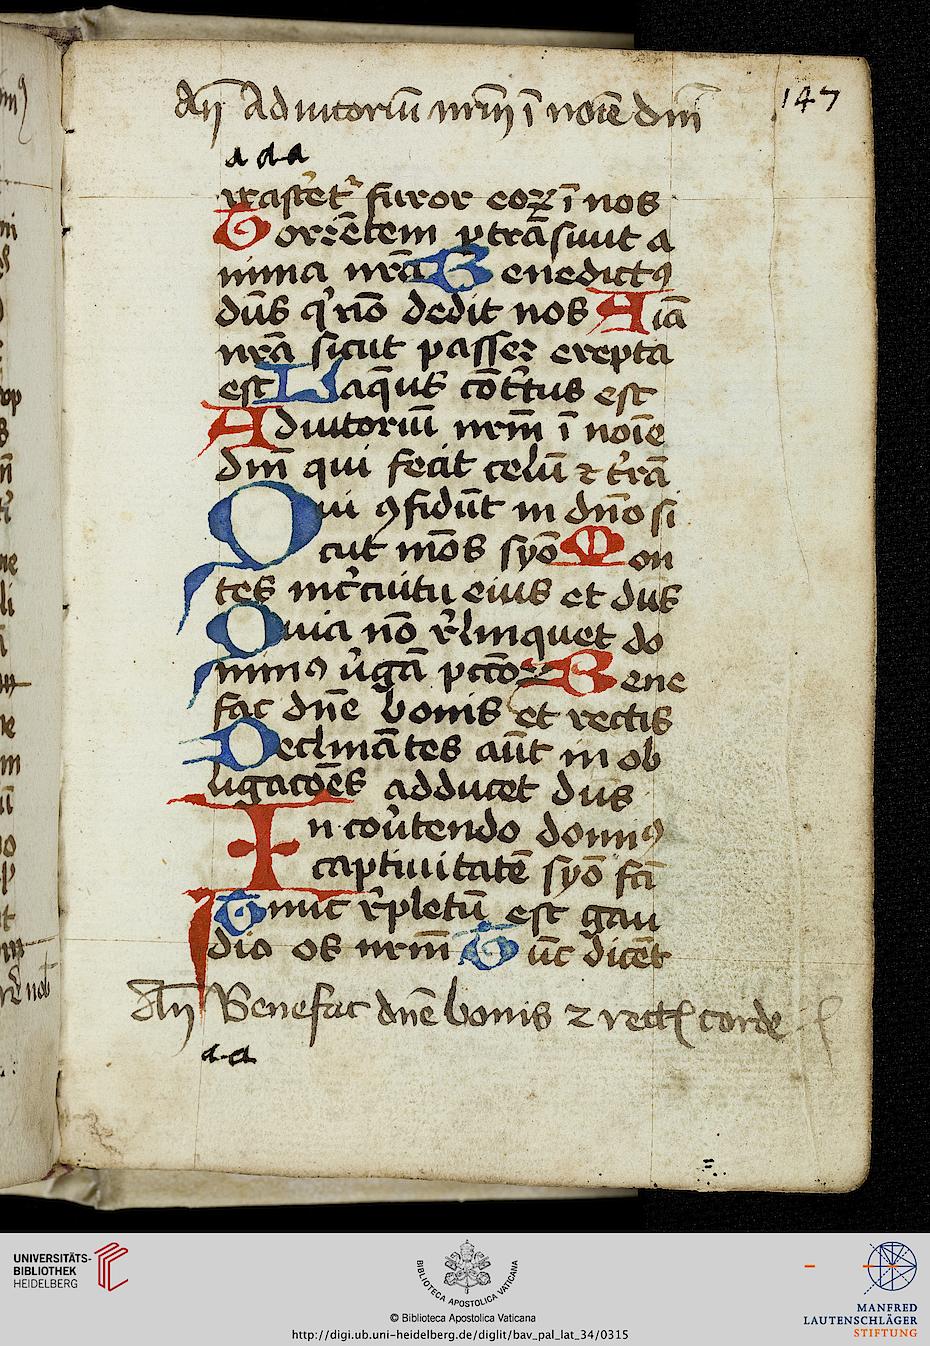 147
An̄ Adiutoriū nrm̄ ī noīe dm̄
a a a
irascet᷑ furor eoꝝ ī nos
Torrētem ꝑtrāsiuit a
nima nrā Benedictꝯ
dn̄s q̇ nō dedit nos Aīa
nrā sicut passer erepta
est Laqu̅s cōtͥtus est
Adiutoriū nrm̄ ī noīe
dm̄ qui fecit celū ⁊ t͛rā
Qui ꝯfidūt in dn̄o si
cut mōs syō Mon
tes in c͛cuitu eius et dn̄s
Quia nō r͛linquet do
minꝯ v͛gā pctōꝝ Bene
fac dn̄e bonis et rectis
Declinātes aūt in ob
ligacōes adducet dn̄s
In cōu͛tendo dominꝯ
captiuitatē syō fcī
Tunc r͛pletū est gau
dio os nrm̄ Tūc dicēt
An̄ Benefac dn̄e bonis ⁊ rectꝭ corde
a a
UNIVERSITÄTS-
BIBLIOTHEK
HEIDELBERG
BIBLIOTECA APOSTOLICA VATICANA
© Biblioteca Apostolica Vaticana
http://digi.ub.uni-heidelberg.de/diglit/bav_pal_lat_34/0315
MANFRED
LAUTENSCHLÄGER
STIFTUNG